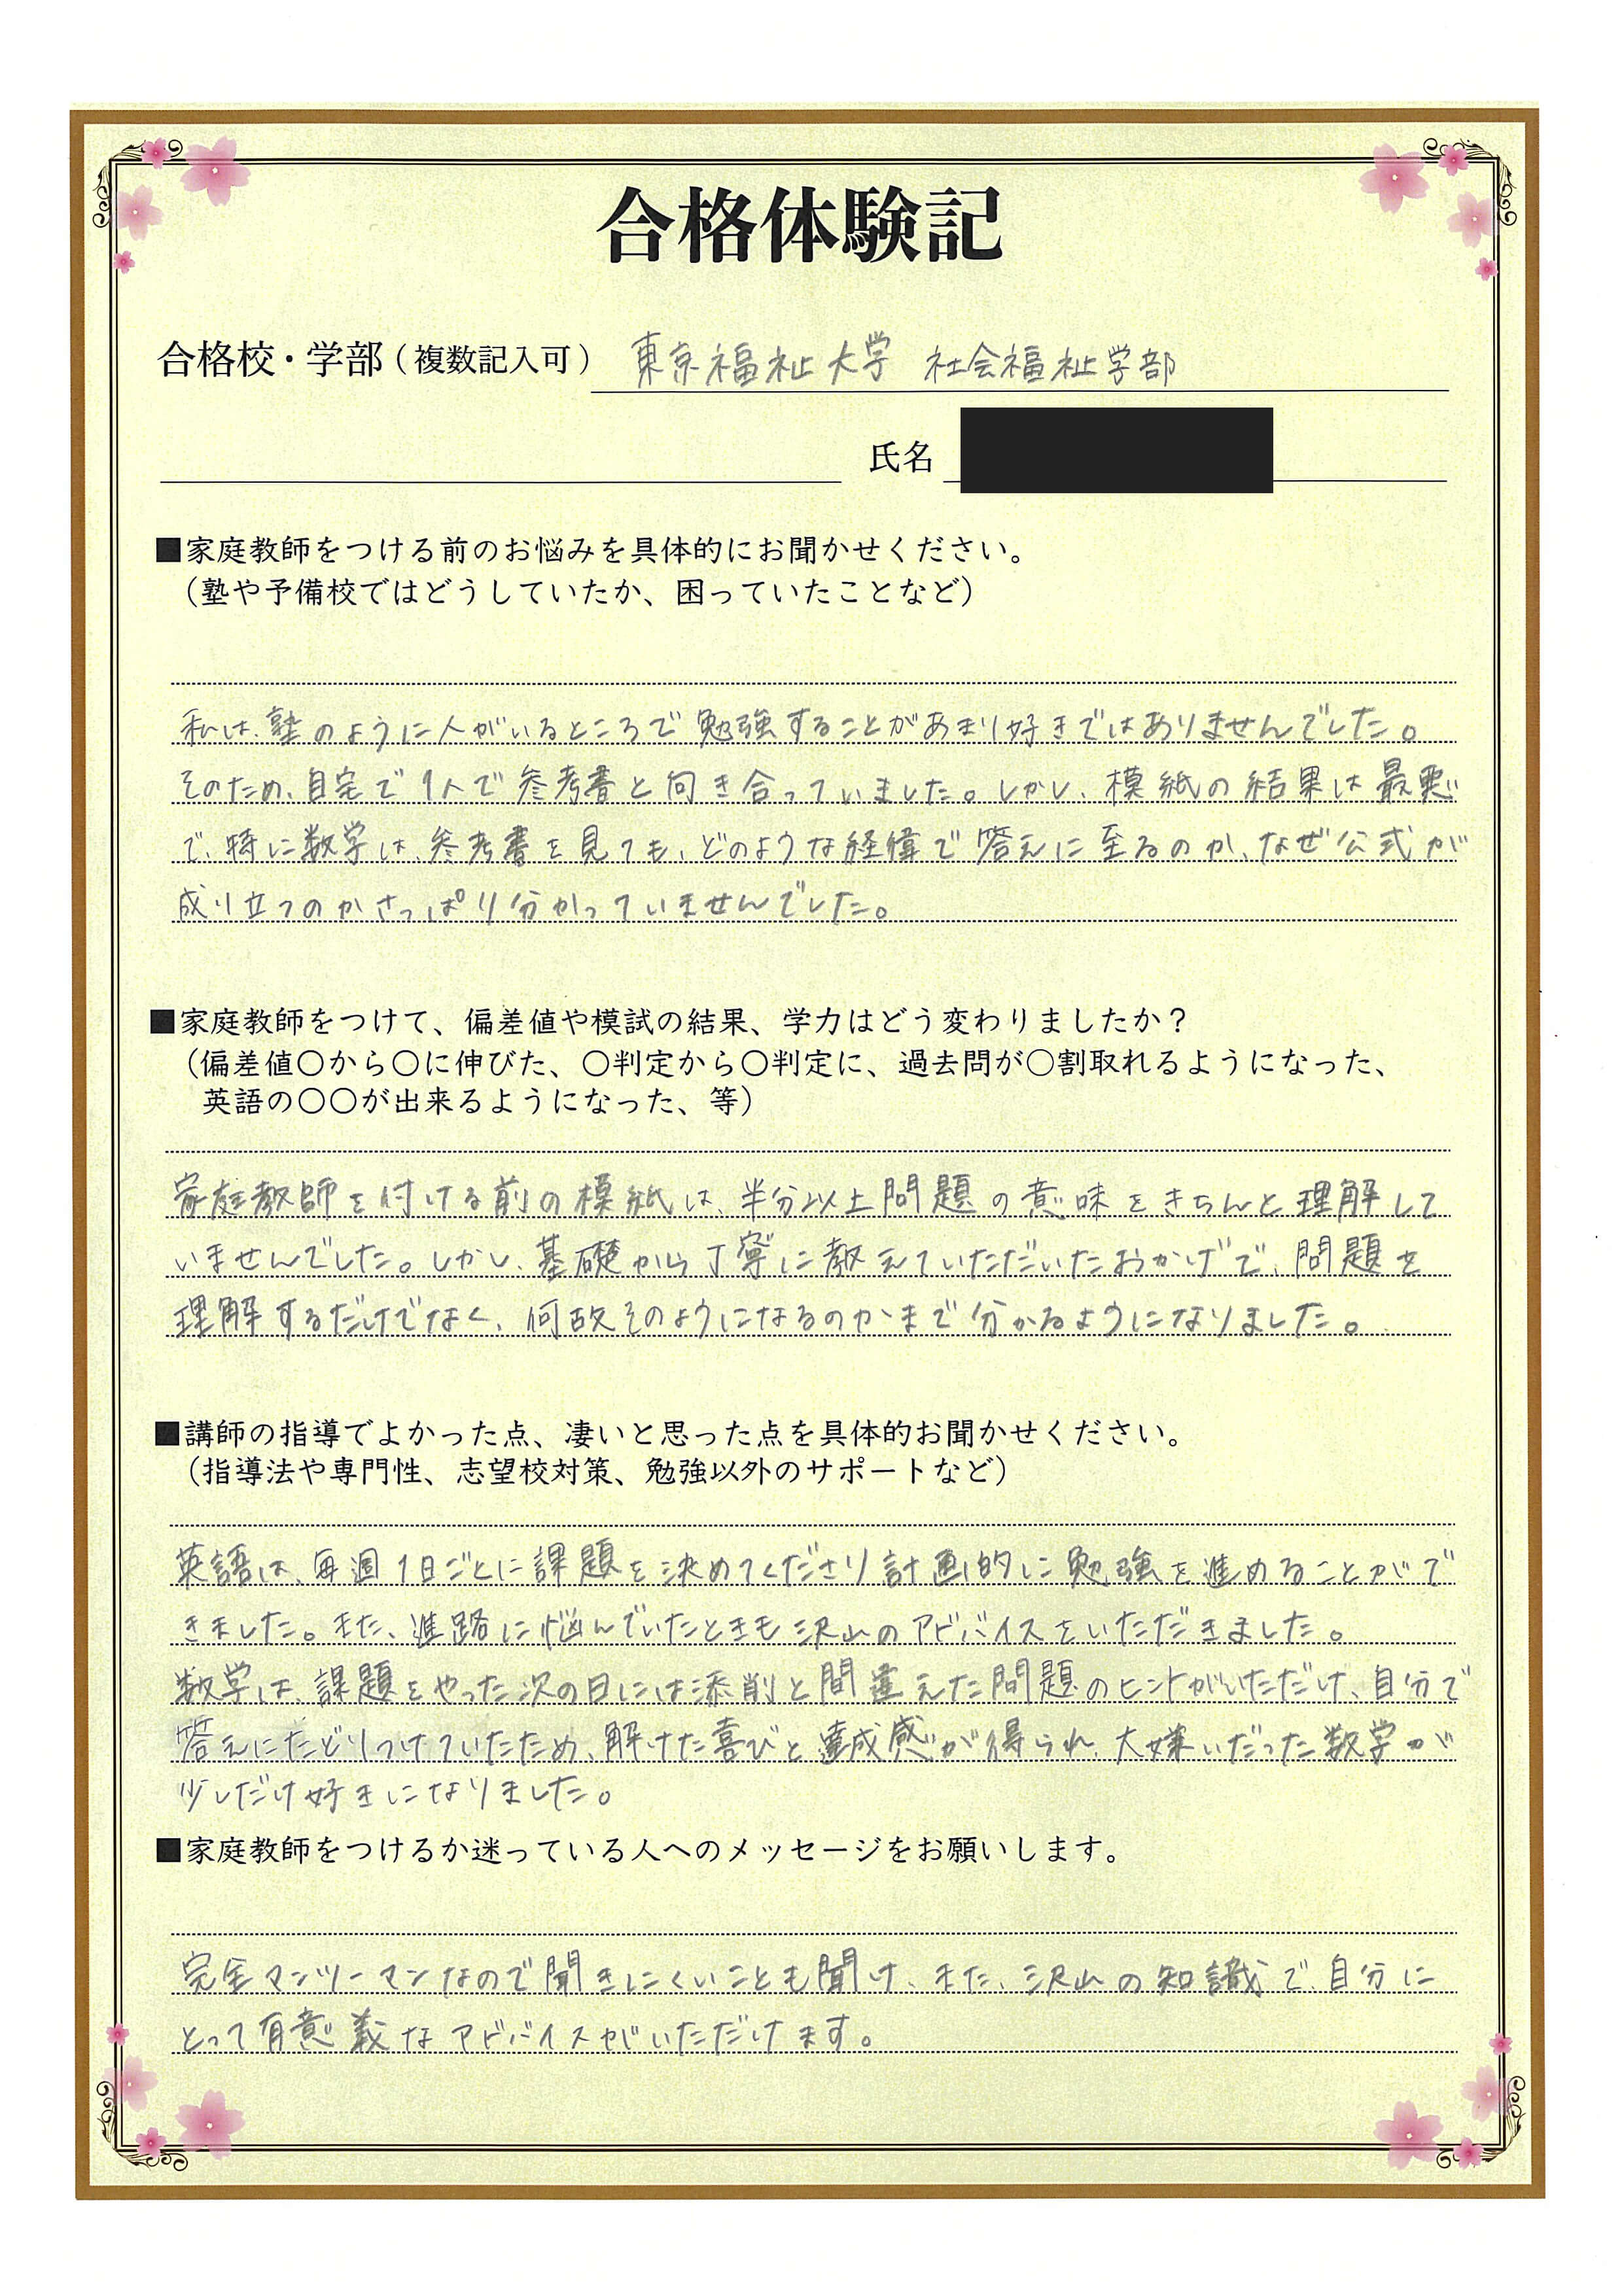 合格体験記
合格校・学部（複数記入可） 東京福祉大学 社会福祉学部
氏名
■家庭教師をつける前のお悩みを具体的にお聞かせください。
（塾や予備校ではどうしていたか、困っていたことなど）
私は、塾のように人がいるところで勉強することがあまり好きではありませんでした。
そのため、自宅で1人で参考書と向き合っていました。しかし、模紙の結果は最悪
で、特に数学は、参考書を見ても、どのような経緯で答えに至るのか、なぜ公式が
成り立つのかさっぱり分かっていませんでした。
■家庭教師をつけて、偏差値や模試の結果、学力はどう変わりましたか？
（偏差値〇から〇に伸びた、〇判定から〇判定に、過去問が〇割取れるようになった、
英語の〇〇が出来るようになった、等）
家庭教師を付ける前の模紙は、半分以上問題の意味をきちんと理解して
いませんでした。しかし、基礎から丁寧に教えていただいたおかげで、問題を
理解するだけでなく、何故そのようになるのかまで分かるようになりました。
■講師の指導でよかった点、凄いと思った点を具体的お聞かせください。
（指導法や専門性、志望校対策、勉強以外のサポートなど）
英語は、毎週1日ごとに課題を決めてくださり計画的に勉強を進めることがで
きました。また、進路に悩んでいたときも沢山のアドバイスをいただきました。
数学は、課題をやった次の日には添削と間違えた問題のヒントがいただけ、自分で
答えにたどりつけていたため、解けた喜びと達成感が得られ、大嫌いだった数学が
少しだけ好きになりました。
■家庭教師をつけるか迷っている人へのメッセージをお願いします。
完全マンツーマンなので聞きにくいことも聞け、また、沢山の知識で、自分に
とって有意義なアドバイスがいただけます。